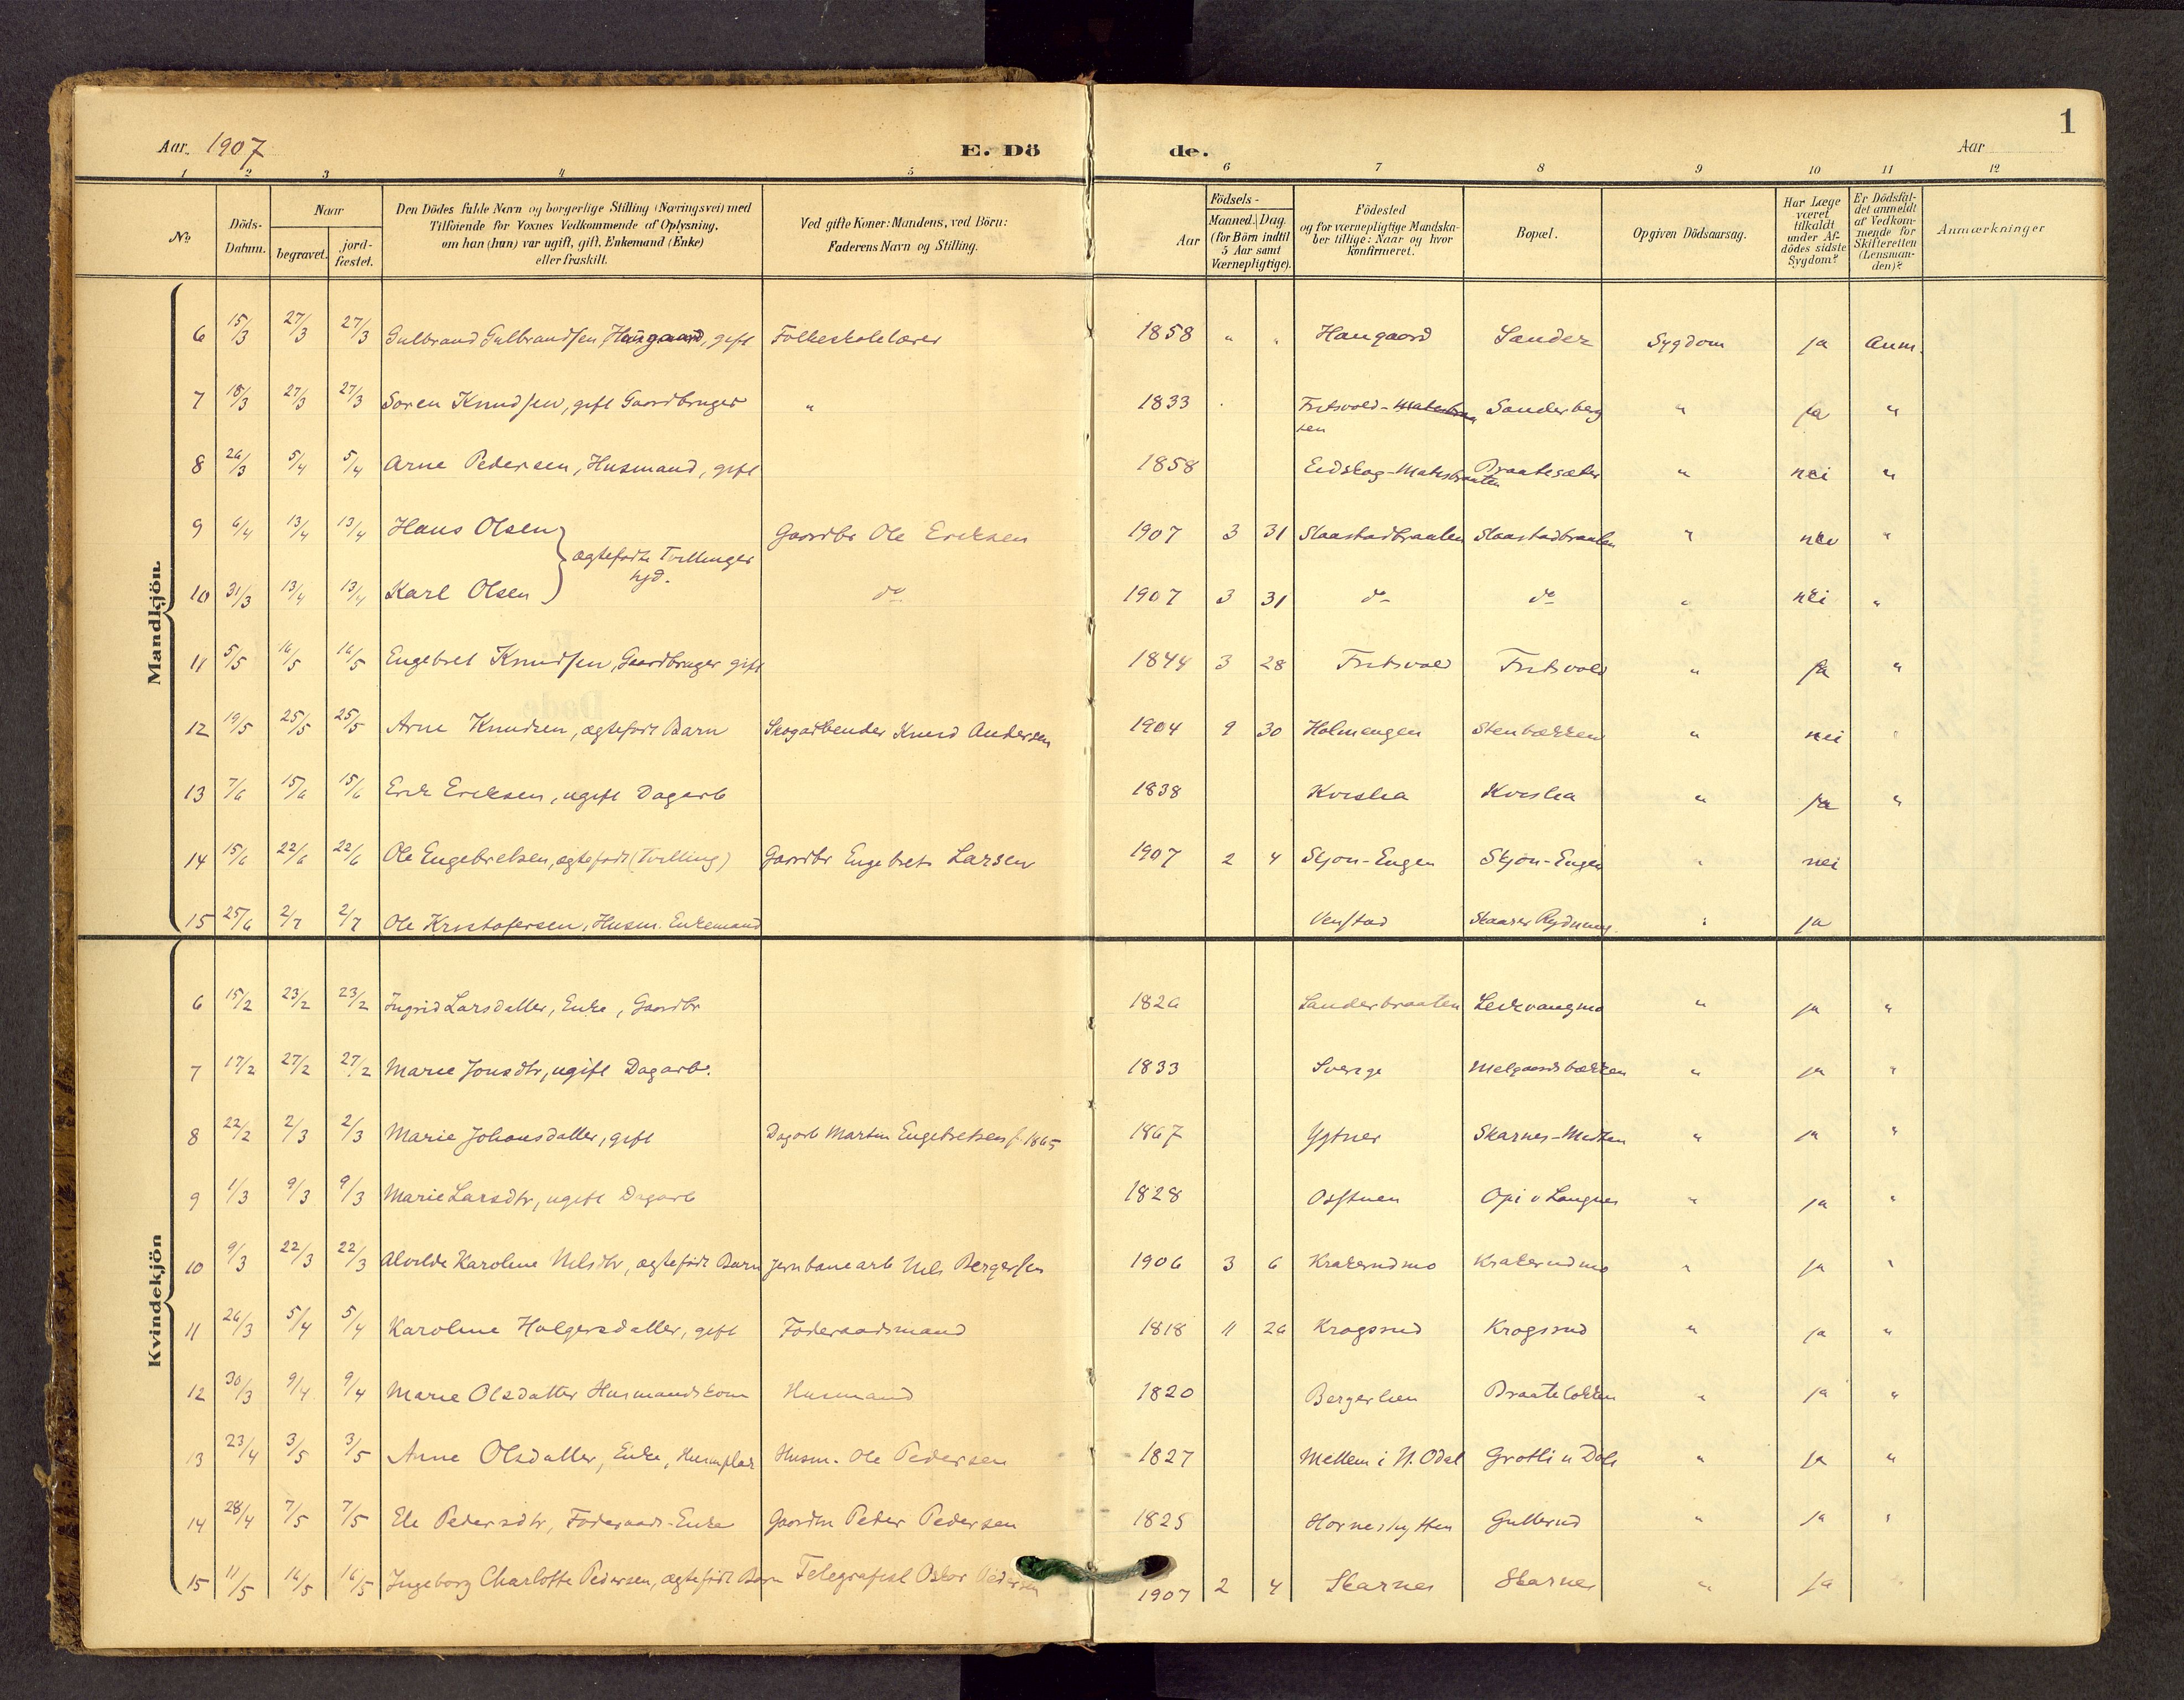 1
Aar. 1907 E. Dö de. Aar
1 2 3 4 5 6 7 8 9 10 11 12
No. Döds-Datum. Naar begravet. jord-fæstet. Den Dödes fulde Navn og borgerlige Stilling (Næringsvei) med Tilföiende for Voxnes Vedkommende af Oplysning, om han (hun) var ugift, gift, Enkemand (Enke) eller fraskilt. Ved gifte Koner: Mandens, ved Börn: Faderens Navn og Stilling. Födsels- Aar Maaned. Dag. (for Börn indtil 5 Aar samt Værnepligtige). Födested og for værnepligtige Mandska-ber tillige: Naar og hvor konfirmeret. Bopæl. Opgiven Dödsaarsag. Har Læge været tilkaldt under Af-dödes sidste Sygdom? Er Dödsfal-det anmeldt af Vedkom-mende for Skifteretten (Lensman-den)? Anmærkninger
Mandkjön.
6 15/3 27/3 27/3 Gulbrand Gulbrandsen Haugaard, gift Folkeskolelærer 1858 " " Haugaard Sander Sygdom ja Anm.
7 18/3 27/3 27/3 Soren Knudsen, gift Gaardbruger " 1833 Fritsvold- Sanderberg " ja "
8 26/3 5/4 5/4 Arne Pedersen, Husmand, gift 1858 Eidskog-Matisbraaten Braatesæter " nei "
9 6/4 13/4 13/4 Hans Olsen } ægtefødte Tvillinger Gaardbr Ole Eriksen 1907 3 31 Slaastadbraaten Slaastadbraaten " nei "
10 31/3 13/4 13/4 Karl Olsen } do 1907 3 31 do do " nei "
11 5/5 16/5 16/5 Engebret Knudsen, Gaardbruger gift 1844 3 28 Fritsvold Fritsvold " ja "
12 19/5 25/5 25/5 Arne Knudsen, ægtefødt Barn Skogarbeider Knud Andersen 1904 9 30 Holmengen Stenbækken " nei "
13 7/6 15/6 15/6 Erik Eriksen, ugift Dagarb 1838 Kvisla Kvisla " ja "
14 15/6 22/6 22/6 Ole Engebretsen, ægtefødt (Tvilling) Gaardbr Engebret Larsen 1907 2 4 Skjøn-Engen Skjøn-Engen " nei
15 25/6 2/7 2/7 Ole Kristofersen, Husm. Enkemand Venstad Skaarer Rydning " ja
Kvindekjön
6 15/2 23/2 23/2 Ingrid Larsdatter, Enke, Gaardbr 1826 Sanderbraaten Leirvangmo " ja "
7 17/2 27/2 27/2 Marie Jonsdtr, ugift Dagarb. 1833 Sverige Melgaardsbækken " ja "
8 22/2 2/3 2/3 Marie Johansdatter, gift Dagarb Martin Engebretsen f. 1865 1867 Ygtner Skarnes-Medten " ja "
9 1/3 9/3 9/3 Marie Larsdtr, ugift Dagarb 1828 Osstuen Opi v Langnes " ja "
10 9/3 22/3 22/3 Alvilde Karoline Nilsdtr, ægtefødt Barn Jernbanearb Nils Bergersen 1906 3 6 Krakerudmo Krakerudmo " ja "
11 26/3 5/4 5/4 Karoline Holgersdatter, gift Føderaadsmand 1818 11 26 Krogsrud Krogsrud " ja "
12 30/3 9/4 9/4 Marie Olsdatter Husmandskone Husmand 1820 Bergerlien Braateløkken " ja "
13 23/4 3/5 3/5 Anne Olsdatter, Enke, Husm. Ole Pedersen 1827 Mellem i N. Odal Grøtli u Dole " ja "
14 28/4 7/5 7/5 Eli Pedersdtr, Føderaads-Enke Gaardm Peder Pedersen 1825 Horneshytten Gullerud " ja "
15 11/5 16/5 16/5 Ingeborg Charlotte Pedersen, ægtefødt Barn Telegrafist Oskar Pedersen 1907 2 4 Skarnes Skarnes " ja